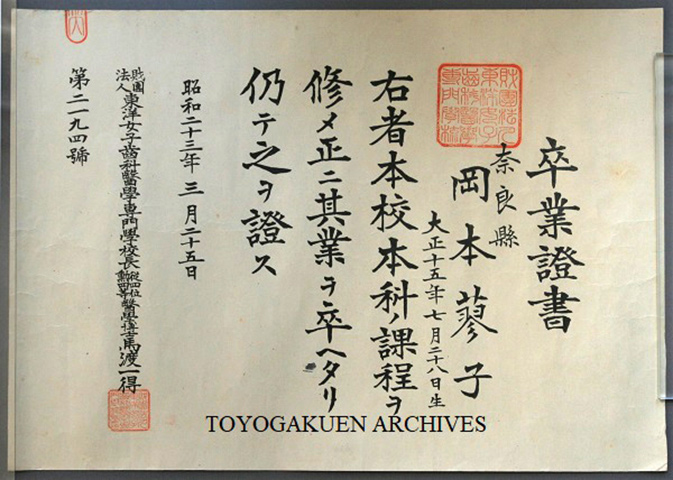 卒業證書
奈良縣
岡本蓼子
大正十五年七月二十八日生
右者本校本科ノ課程ヲ
修メ正ニ其業ヲ卒ヘタリ
仍テ之ヲ證ス
昭和二十三年三月二十五日
財團法人東洋女子齒科醫學專門學校長從四位勳四等醫學博士馬渡一得
第二一九四號
TOYOGAKUEN ARCHIVES